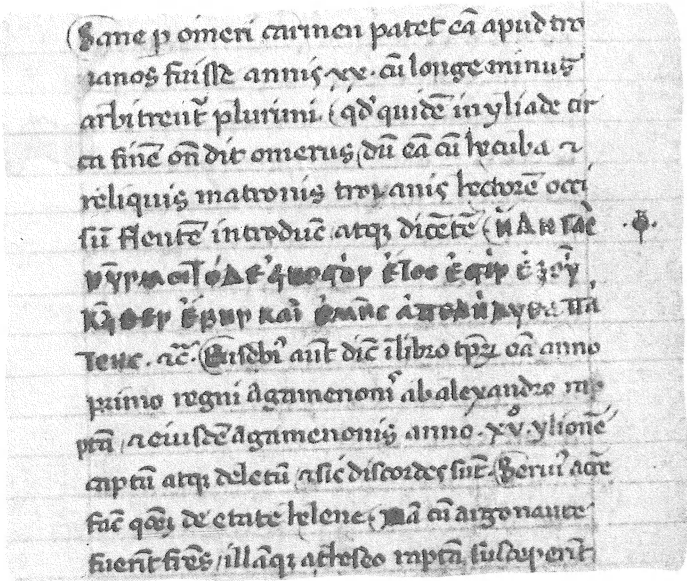 Sane p omeri carmen patet eā apud tro
ianos fuisse annis .xx. cū longe minus
arbitrent᷑ plurimi. qđ quidē in yliade cir
ca finē on̄dit omerus, dū eā cū hecuba ⁊
reliquis matronis troyanis hectorē occi
sū flentē introducē atqꝫ dicētē.
ἐξ οὗ
ἔβην καὶ ἐμῆς
.⁊c̄. Eusebiꝰ aut̄ dic̄ ī libro tp̄ꝝ eā anno
primo regni Agamenoniꝰ ab alexandro ra
ptā, ⁊ eiusdē Agamenonis anno .xv.º ylionē
captū atqꝫ deletū, ⁊ sic discordes sūt. Seruiꝰ
de etate helene, nā cū argonaute
fuerīt frēs, illāqꝫ a theseo raptā susceperīt